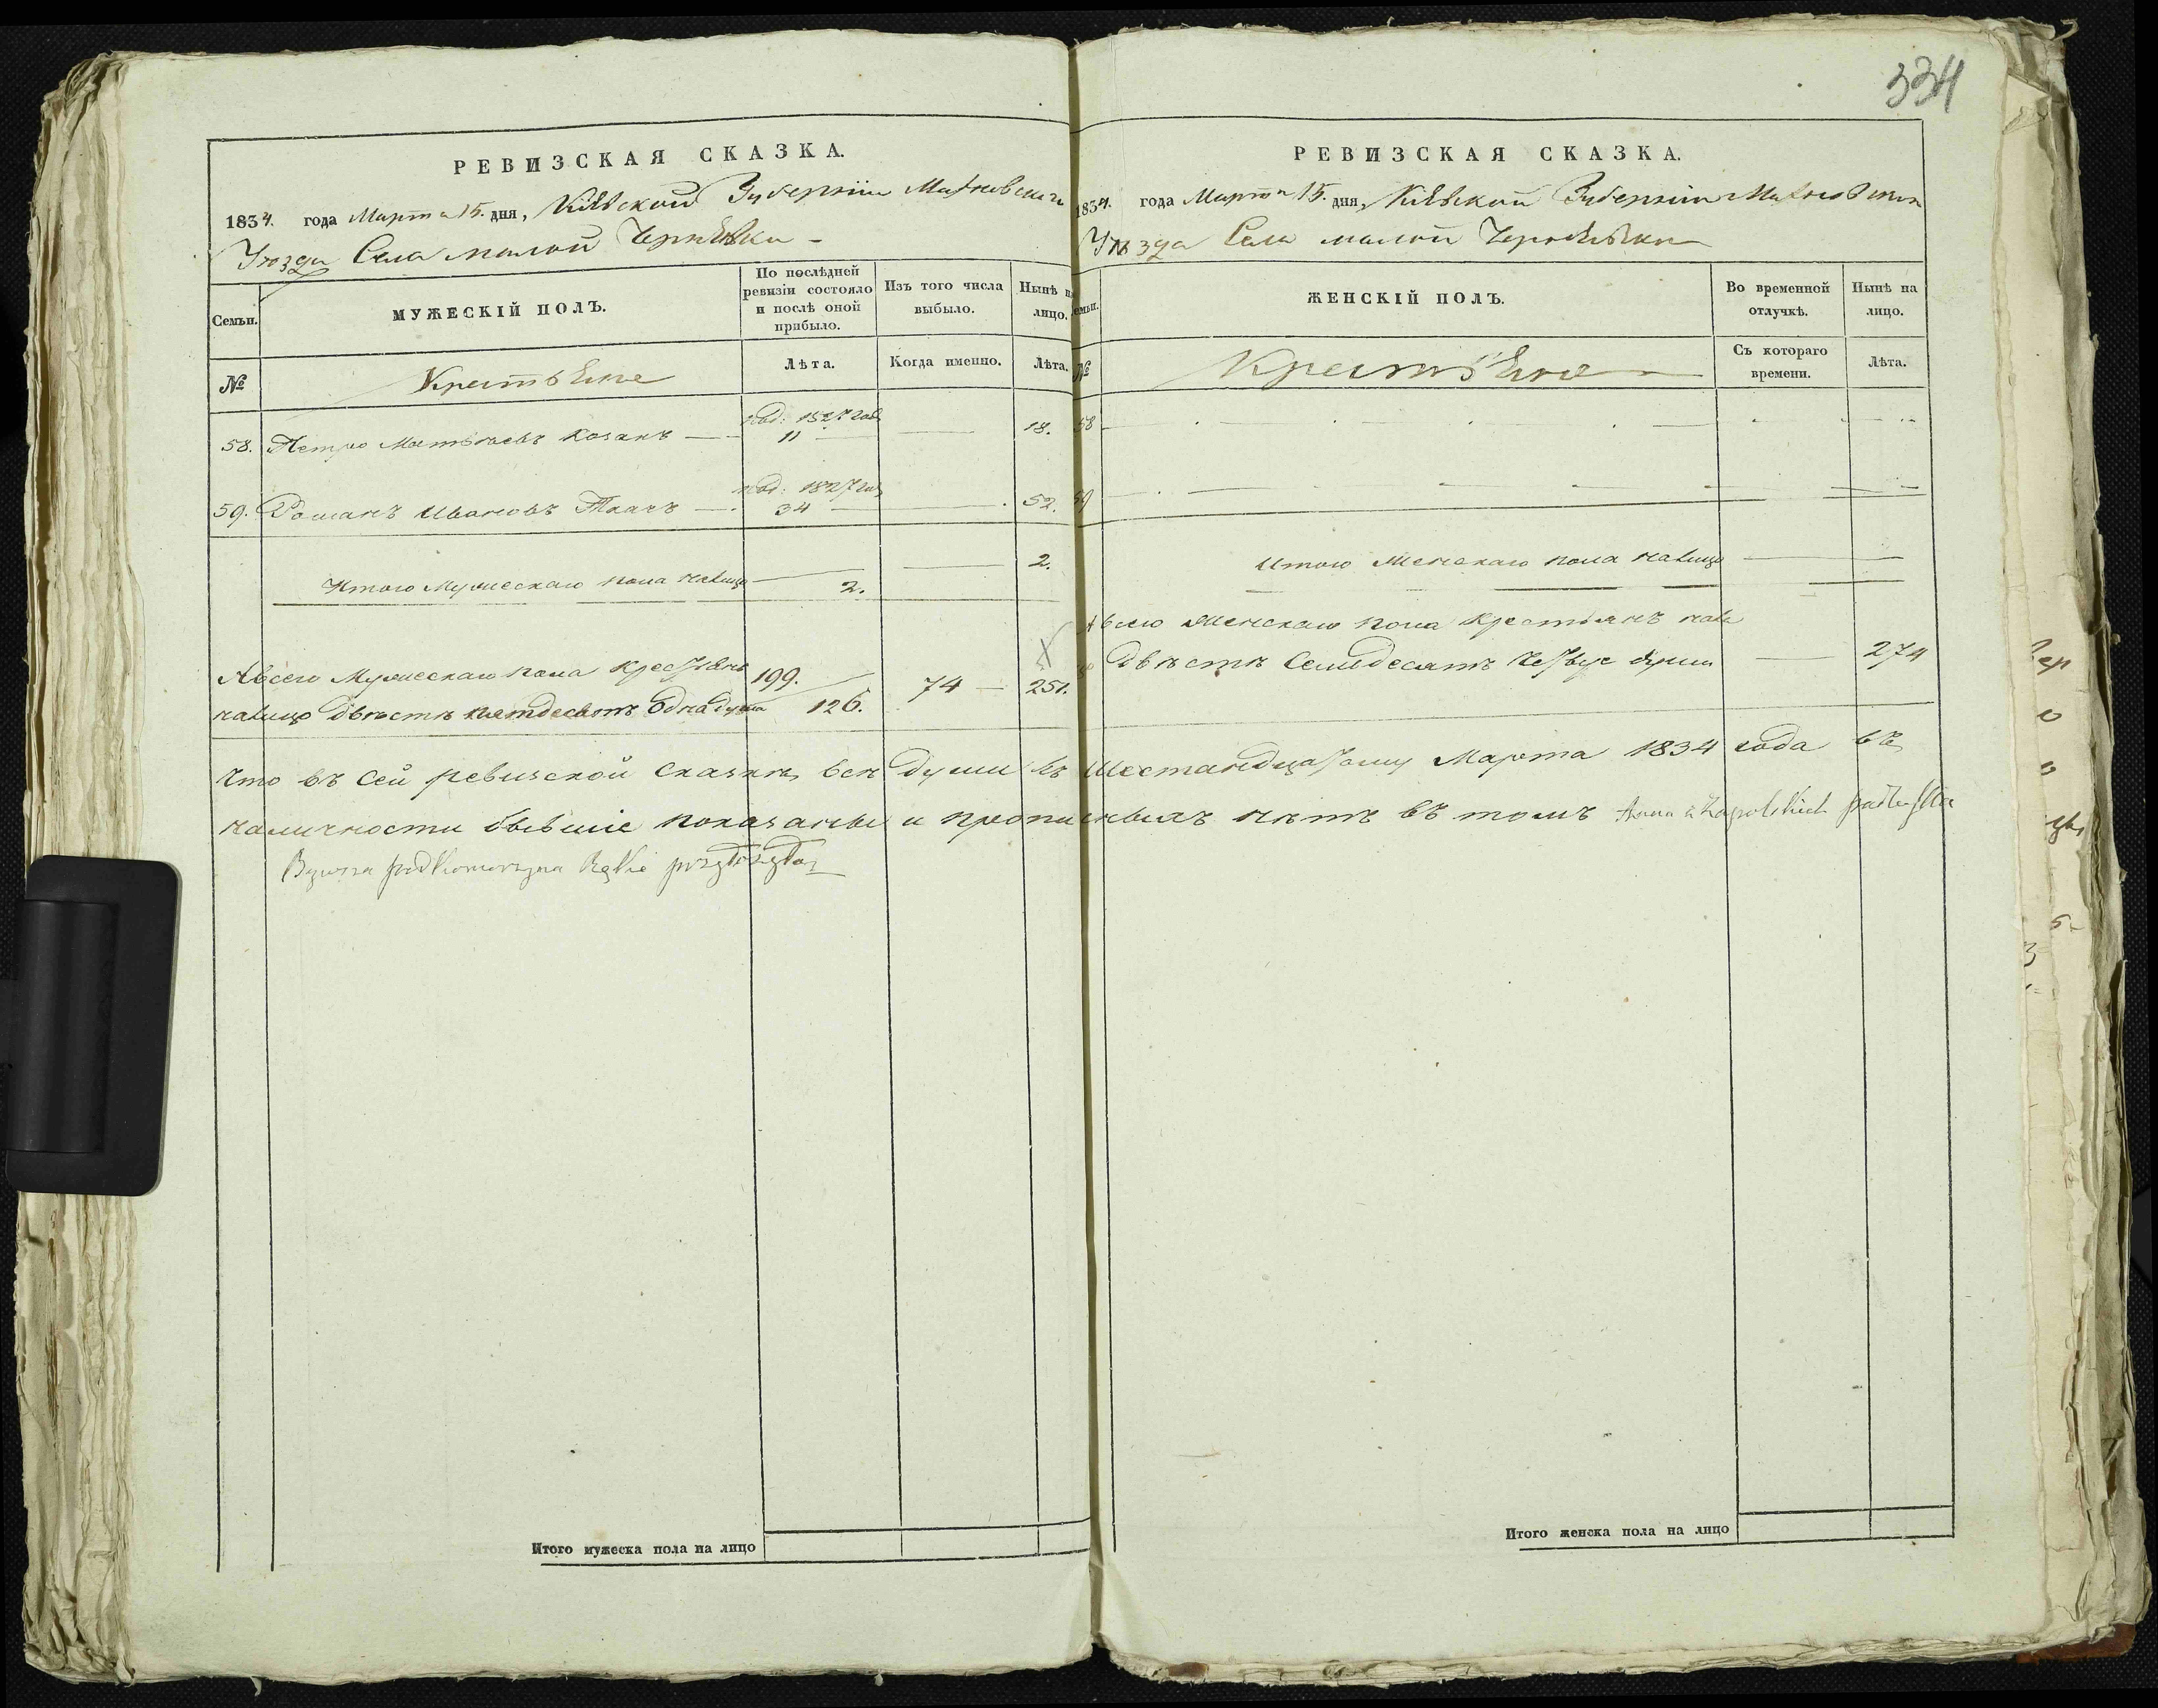 334
РЕВИЗСКАЯ СКАЗКА.
1834. года Марта 15. дня, Кіевской Губерніи Махновскаго
Уѣзда Села малой Чернявки
Семьи.
МУЖЕСКІЙ ПОЛЪ.
По послѣдней ревизіи состояло и послѣ оной прибыло.
Изъ того числа выбыло.
Нынѣ на лицо.
№
Крестьяне
Лѣта.
Когда именно.
Лѣта.
58. Петро Матвѣевъ Козакъ — 1827 11 — 18.
59. Романъ Ивановъ Ткачъ — 1827 34 — 52.
Итого Мужескаго пола налицо — 2. — 2.
А всего Мужескаго пола Крестьянъ 199.
налицо двѣстѣ пятдесятъ одна душа 126. 74 — 251.
РЕВИЗСКАЯ СКАЗКА.
1834. года Марта 15. дня, Кіевской Губерніи Махновскаго
Уѣзда Села малой Чернявки
Семьи.
ЖЕНСКІЙ ПОЛЪ.
Во временной отлучкѣ.
Нынѣ на лицо.
№
Крестьяне
Съ котораго времени.
Лѣта.
58
59
Итого Женскаго пола налицо
А всего Женскаго пола Крестьянъ нали
цо двѣстѣ Семдесятъ четыре души — 274
Что въ сей ревизской сказкѣ всѣ души къ Шестандцатому Марта 1834 года въ
наличности бывшіе показаны и прописныхъ нѣтъ въ томъ Anna z Zapolskich
podkomorzyna Rękę
Итого мужеска пола на лицо
Итого женска пола на лицо